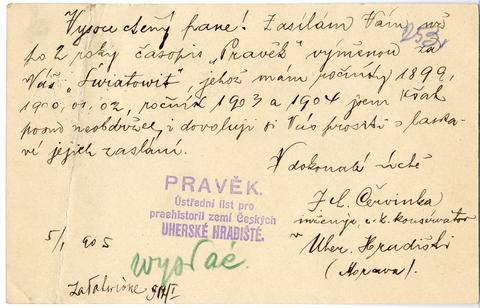 Vysoce ctěný pane! Zasílám Vám už
po 2 roky časopis „Pravěk" výměnou za
Váš „Światowit", jehož mám ročníky 1899,
1900, 01, 02, ročník 1903 a 1904 jsem však
posud neobdržel, i dovoluji si Vás prositi o laska-
vé jejich zaslání.
V dokonalé úctě
I. L. Červinka
inženýr, c. k. konservátor
v Uher. Hradišti
(Morava).
253
PRAVĚK.
Ústřední list pro
praehistorii zemí Českých
UHERSKÉ HRADIŠTĚ.
5/1 905
wysłać.
Załatwione 9/I